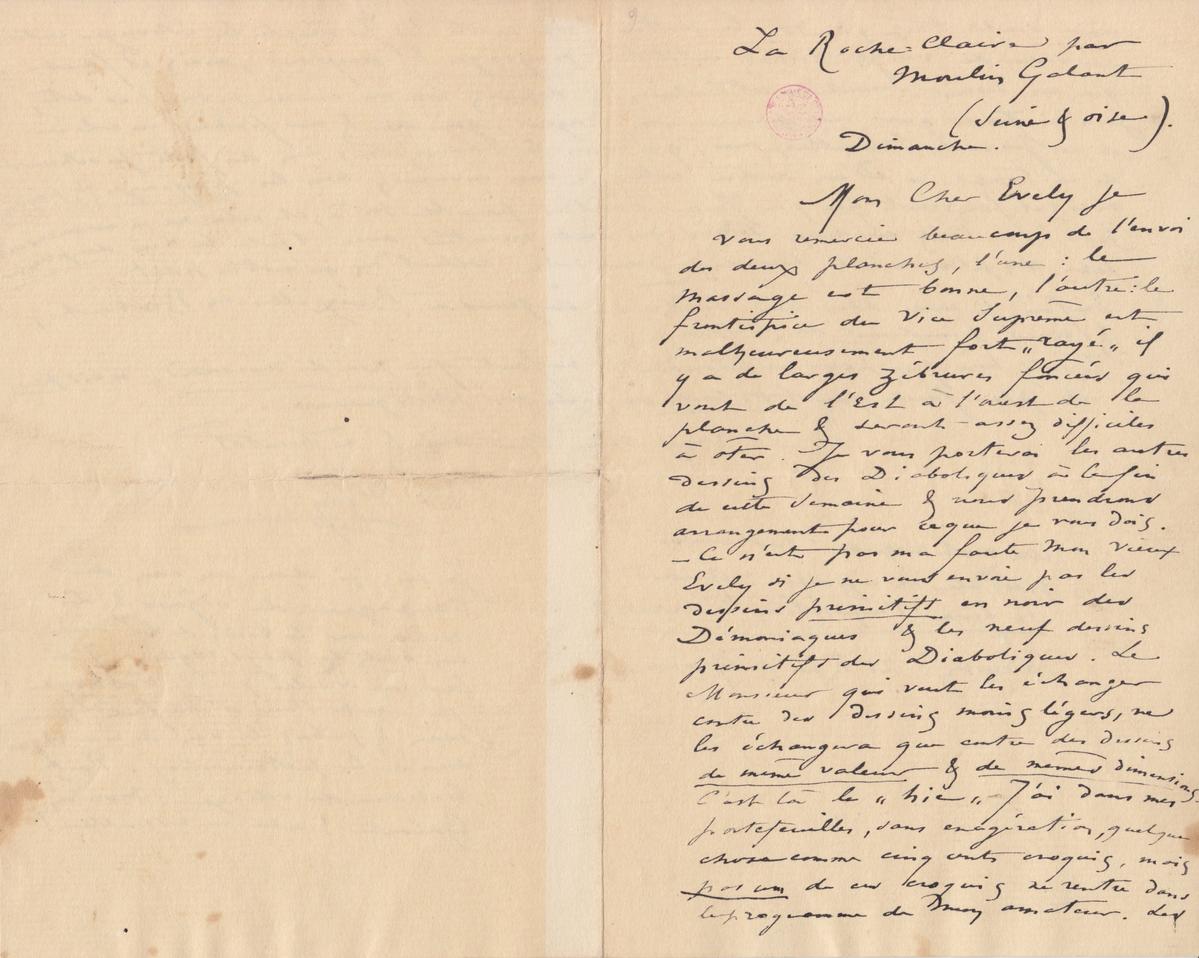 La Roche-Claire par
Moulin Galant
(Seine & oise).
Dimanche.
Mon Cher Evely je
vous remercie beaucoup de l'envoi
des deux planches, l'une : le
massage est bonne, l'autre : le
frontispice du Vice Suprême est
malheureusement fort „rayé„ il
y a de larges zébrures foncées qui
vont de l'Est à l'ouest de la
planche & seront assez difficiles
à ôter. Je vous porterai les autres
dessins des Diaboliques à la fin
de cette semaine & nous prendrons
arrangement pour ce que je vous dois.
– Ce n'est pas ma faute mon vieux
Evely si je ne vous envoie pas les
dessins primitifs en noir des
Démoniaques & les neuf dessins
primitifs des Diaboliques. Le
Monsieur qui veut les échanger
contre des dessins moins légers, ne
les échangera que contre des dessins
de même valeur & de mêmes dimensions.
C'est là le „hic„ J'ai dans mes
portefeuilles, sans exagération, quelque
chose comme cinq cents croquis, mais
pas un de ces croquis ne rentre dans
le programme de mon amateur. Les